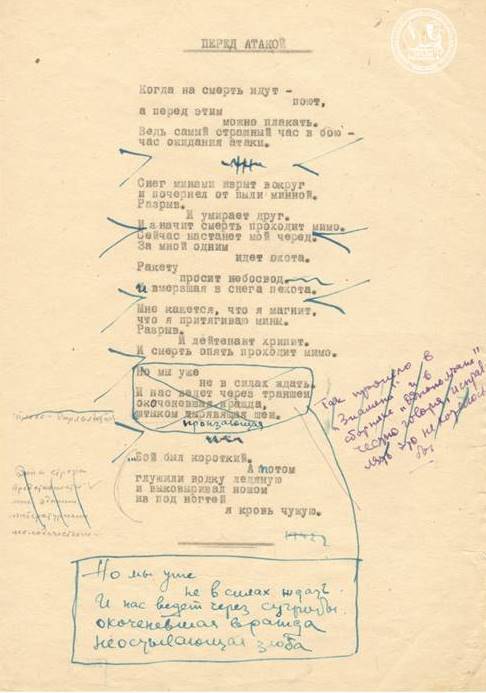 ПЕРЕД АТАКОЙ
Когда на смерть идут -
поют,
а перед этим
можно плакать.
Ведь самый страшный час в бою -
час ожидания атаки.
Снег минами изрыт вокруг
и почернел от пыли минной.
Разрыв.
И умирает друг.
И значит смерть проходит мимо.
Сейчас настанет мой черед.
За мной одним
идет охота.
Ракету
просит небосвод
и вмерзшая в снега пехота.
Мне кажется, что я магнит,
что я притягиваю мины.
Разрыв.
И лейтенант хрипит.
И смерть опять проходит мимо.
Но мы уже
не в силах ждать.
И нас ведет через траншеи
окоченевшая вражда,
штыком дырявящая шеи.
пронзающая
Так прошло в
"Знамени" и в
сборнике
честно говоря исправ
лять это не
Бой был короткий.
А потом
глушили водку ледяную
и выковыривал ножом
из под ногтей
я кровь чужую.
Эта строка
мне
Но мы уже
не в силах ждать.
И нас ведет через сугробы
окоченевшая вражда
неостывающая злоба